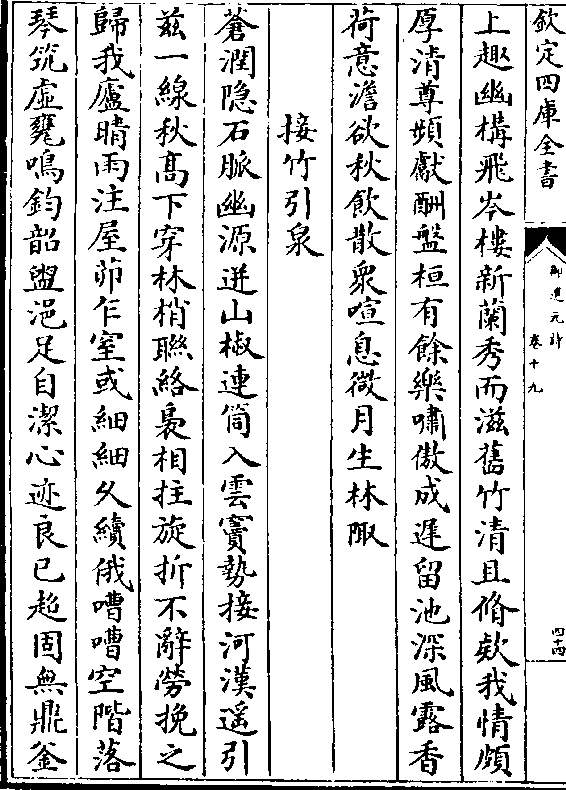 欽定四庫全書
御選元詩
卷十九
四十四
上趣幽構飛岑樓新蘭秀而滋舊竹清且脩欵我情頗
厚清尊頻獻酬盤桓有餘樂嘯傲成遲留池深風露香
荷意澹欲秋飲散衆喧息微月生林陬
接竹引泉
蒼潤隐石脈幽源迸山椒連筒入雲竇勢接河漢遥引
兹一線秋髙下穿林梢聯絡裊相拄旋折不辭勞挽之
歸我廬晴雨注屋茆乍室或細細久續俄嘈嘈空階落
琴筑虛甕鳴鈞韶盥浥足自潔心迹良已超固無鼎釜